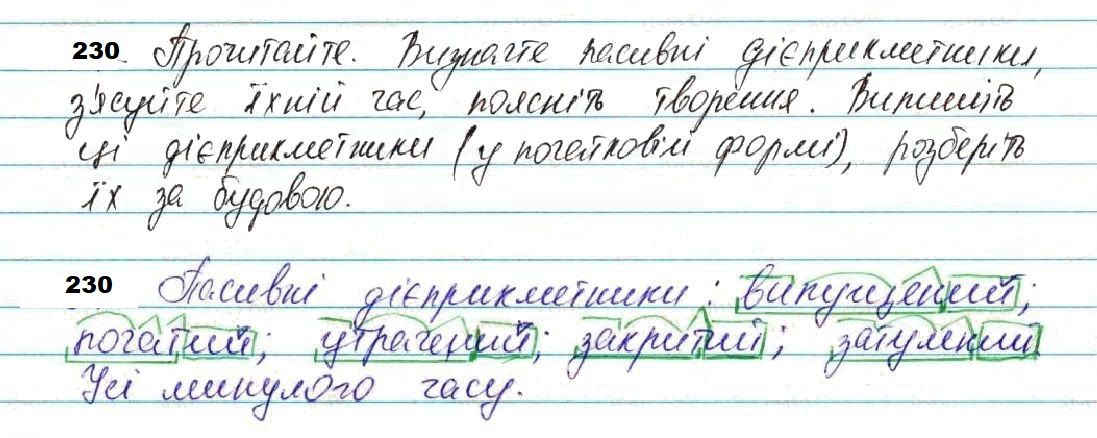 230 Прочитайте. Визначте пасивні дієприкметники,
з'ясуйте їхній час, поясніть творення. Випишіть
ці дієприкметники (у початковій формі), розберіть
їх за будовою.
230 Пасивні дієприкметники: випущений;
початий; утрачений; закритий; затулений
Усі минулого часу.